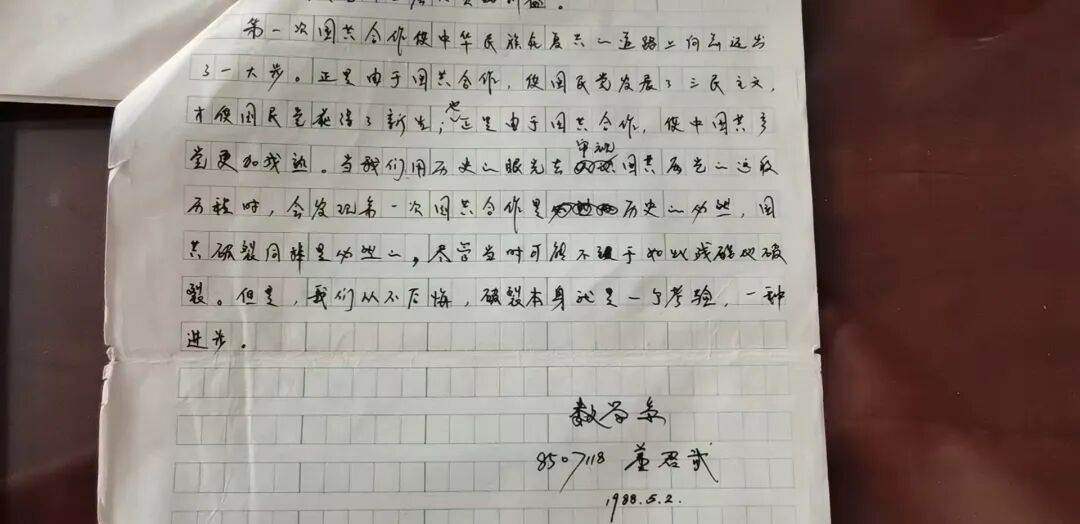 第一次国共合作使中华民族在复兴的道路上向前迈出
了一大步。正是由于国共合作，使国民党发展了三民主义，
才使国民党获得了新生；也正是由于国共合作，使中国共产
党更加成熟。当我们用历史的眼光去审视国共历史的这段
历程时，会发现第一次国共合作是历史的必然，国
共破裂同样是必然的，尽管当时可能不至于如此残酷地破
裂。但是，我们从不后悔，破裂本身就是一个考验，一种
进步。
数学系
8507118 董君武
1988.5.2.